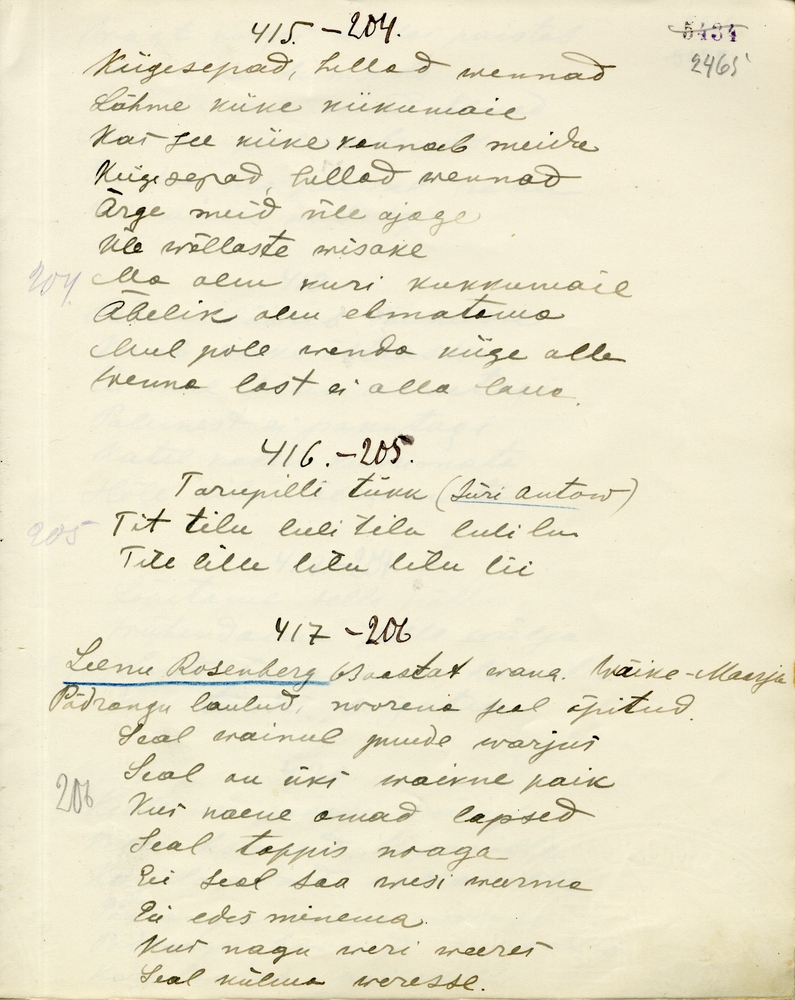 415. – 204.
5434
2465
Kiigesepad, hellad wennad
Lähme kiike kiikumaie
Kas see kiike kannab meida
Kiigesepad, hellad wennad
Ärge meid üle ajage
Üle wõllaste wisake
204 Ma olen kuri kukkumaie
Äbelik olen ehmatama
Mul pole wenda kiige alla
Wenna last ei alla laua.
416. – 205.
Torupilli tükk (Jüri Antow)
205 Tit tilu luli tilu luli lu
Tile lillu lilu lilu lii
417 – 206
Leenu Rosenberg 63 aastat wana. Wäike-Maarja
Pädrangu laulud, noorena seal õpitud.
Seal wainul puude warjus
206 Seal on üks waikne paik
Kus naene omad lapsed
Seal tappis noaga
Ei seal saa wesi wärma
Ei edes minema.
Kus nagu weri weeres
Seal külma weresse.